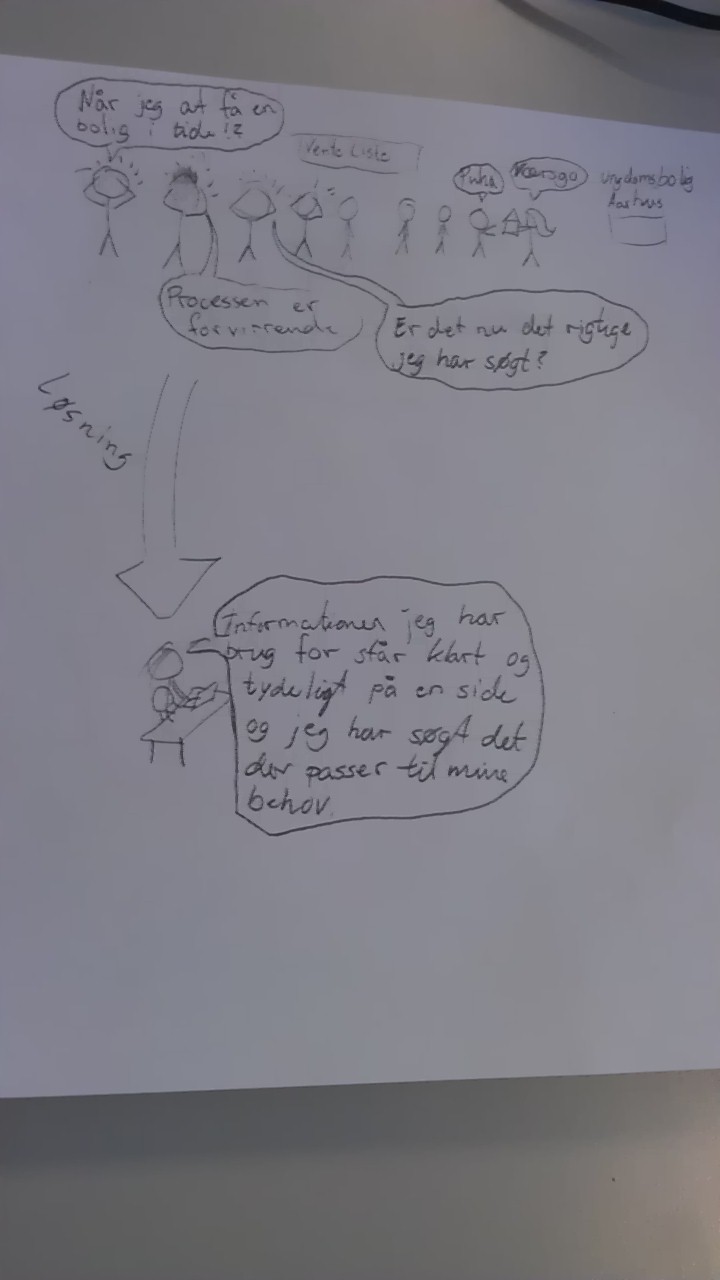 Når jeg at få en
bolig i tide!?
Vente Liste
Puha
Værsgo
ungdomsbolig
Aarhus
Processen er
forvirrende
Er det nu det rigtige
jeg har søgt?
Løsning
Informationen jeg har
brug for står klart og
tydeligt på en side
og jeg har søgt det
der passer til mine
behov.